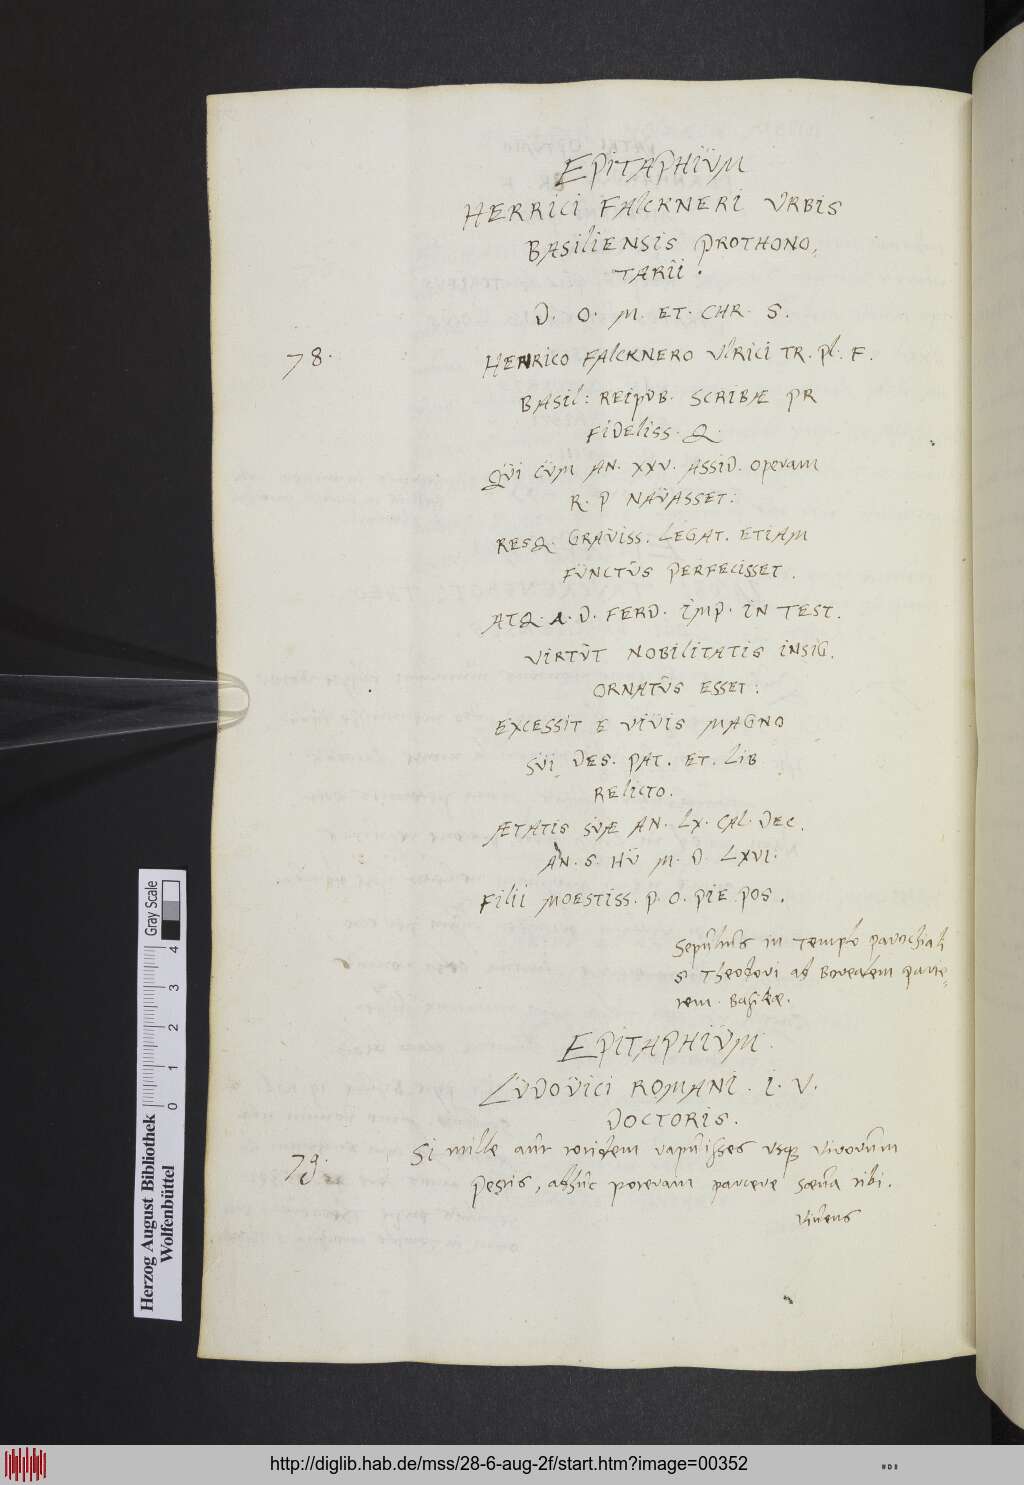 EPITAPHIŬM
HERRICI FALCKNERI VRBIS
BASILIENSIS PROTHONO,
TARII.
D. O. M. ET. CHR. S.
78.
HENRICO FALCKNERO VLRICI TR. Pl. F.
BASIL: REIPVB. SCRIBÆ PR
FIDELISS. Q.
QŬI CŬM AN. XXV. ASSID. Operam
R. P NAŬASSET:
RESQ. GRAŬISS. LEGAT. ETIAM
FŬNCTŬS PERFECISSET.
ATQ. A. D. FERD. IMP. IN TEST.
VIRTŬT NOBILITATIS INSIG.
ORNATŬS ESSET:
EXCESSIT E VIŬIS MAGNO
SŬI DES. PAT. ET. LIB
RELICTO.
ÆTATIS SVÆ AN. LX. CAL. DEC.
AN. S. HŬ M. D. LXVI.
FILII MOESTISS. P. O. PIE POS.
Sepultŭs in Templo parochiali
S. Theodori ad Borealem parie-
tem Basileæ.
EPITAPHIŬM
LŬDOŬICI ROMANI. I. V.
DOCTORIS.
79.
Si mille aŭt totidem rapŭisses usq; virorŭm
Pestis, adhŭc poteram parcere sæŭa tibi.
Viŭens
0 1 2 3 4
Gray Scale
Herzog August Bibliothek
Wolfenbüttel
http://diglib.hab.de/mss/28-6-aug-2f/start.htm?image=00352